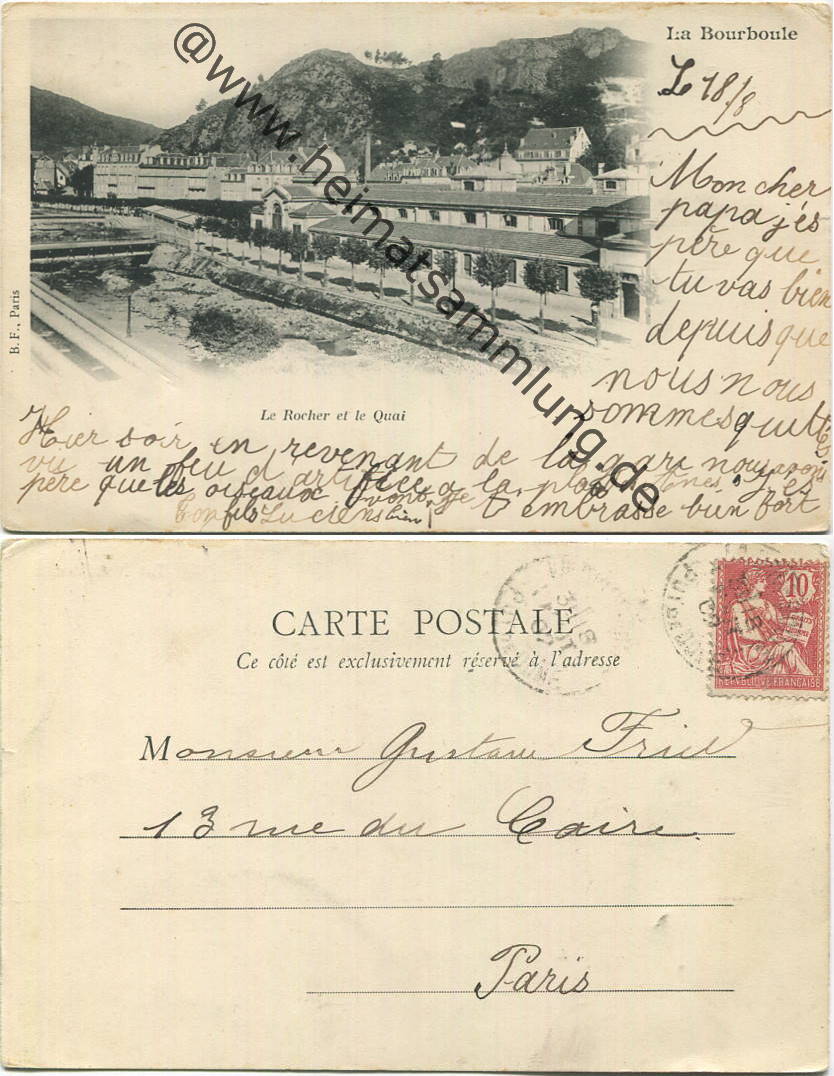 La Bourboule
Le 18/8
Mon cher
papa j'es
père que
tu vas bien
depuis que
nous nous
sommes quittés
Le Rocher et le Quai
B. F., Paris
Hier soir en revenant de la gare nous avons
vu un feu d'artifice a la plage j'es
père que les oiseaux vont bien je t'embrasse bien fort
Ton fils Lucien
@www.heimatsammlung.de
CARTE POSTALE
Ce côté est exclusivement réservé à l'adresse
10
REPVBLIQVE FRANÇAISE
Monsieur Gustave
13 rue du Caire
Paris